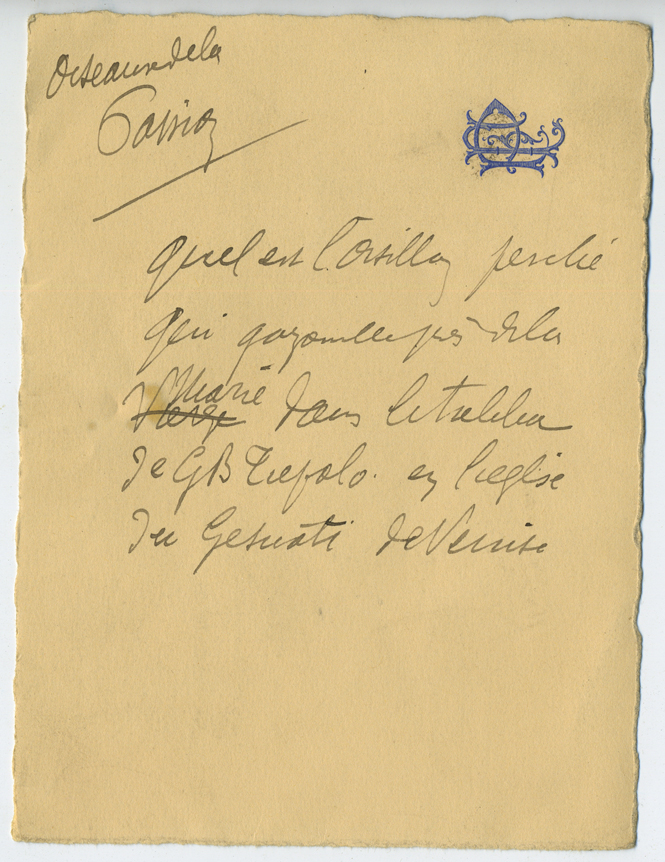 Oiseaux de la
Passion
quel est l'oisillon perché
qui gazouille près de la
Vierge Marie dans le tableau
de GB Tiepolo en l'eglise
du Gesuati de Venise